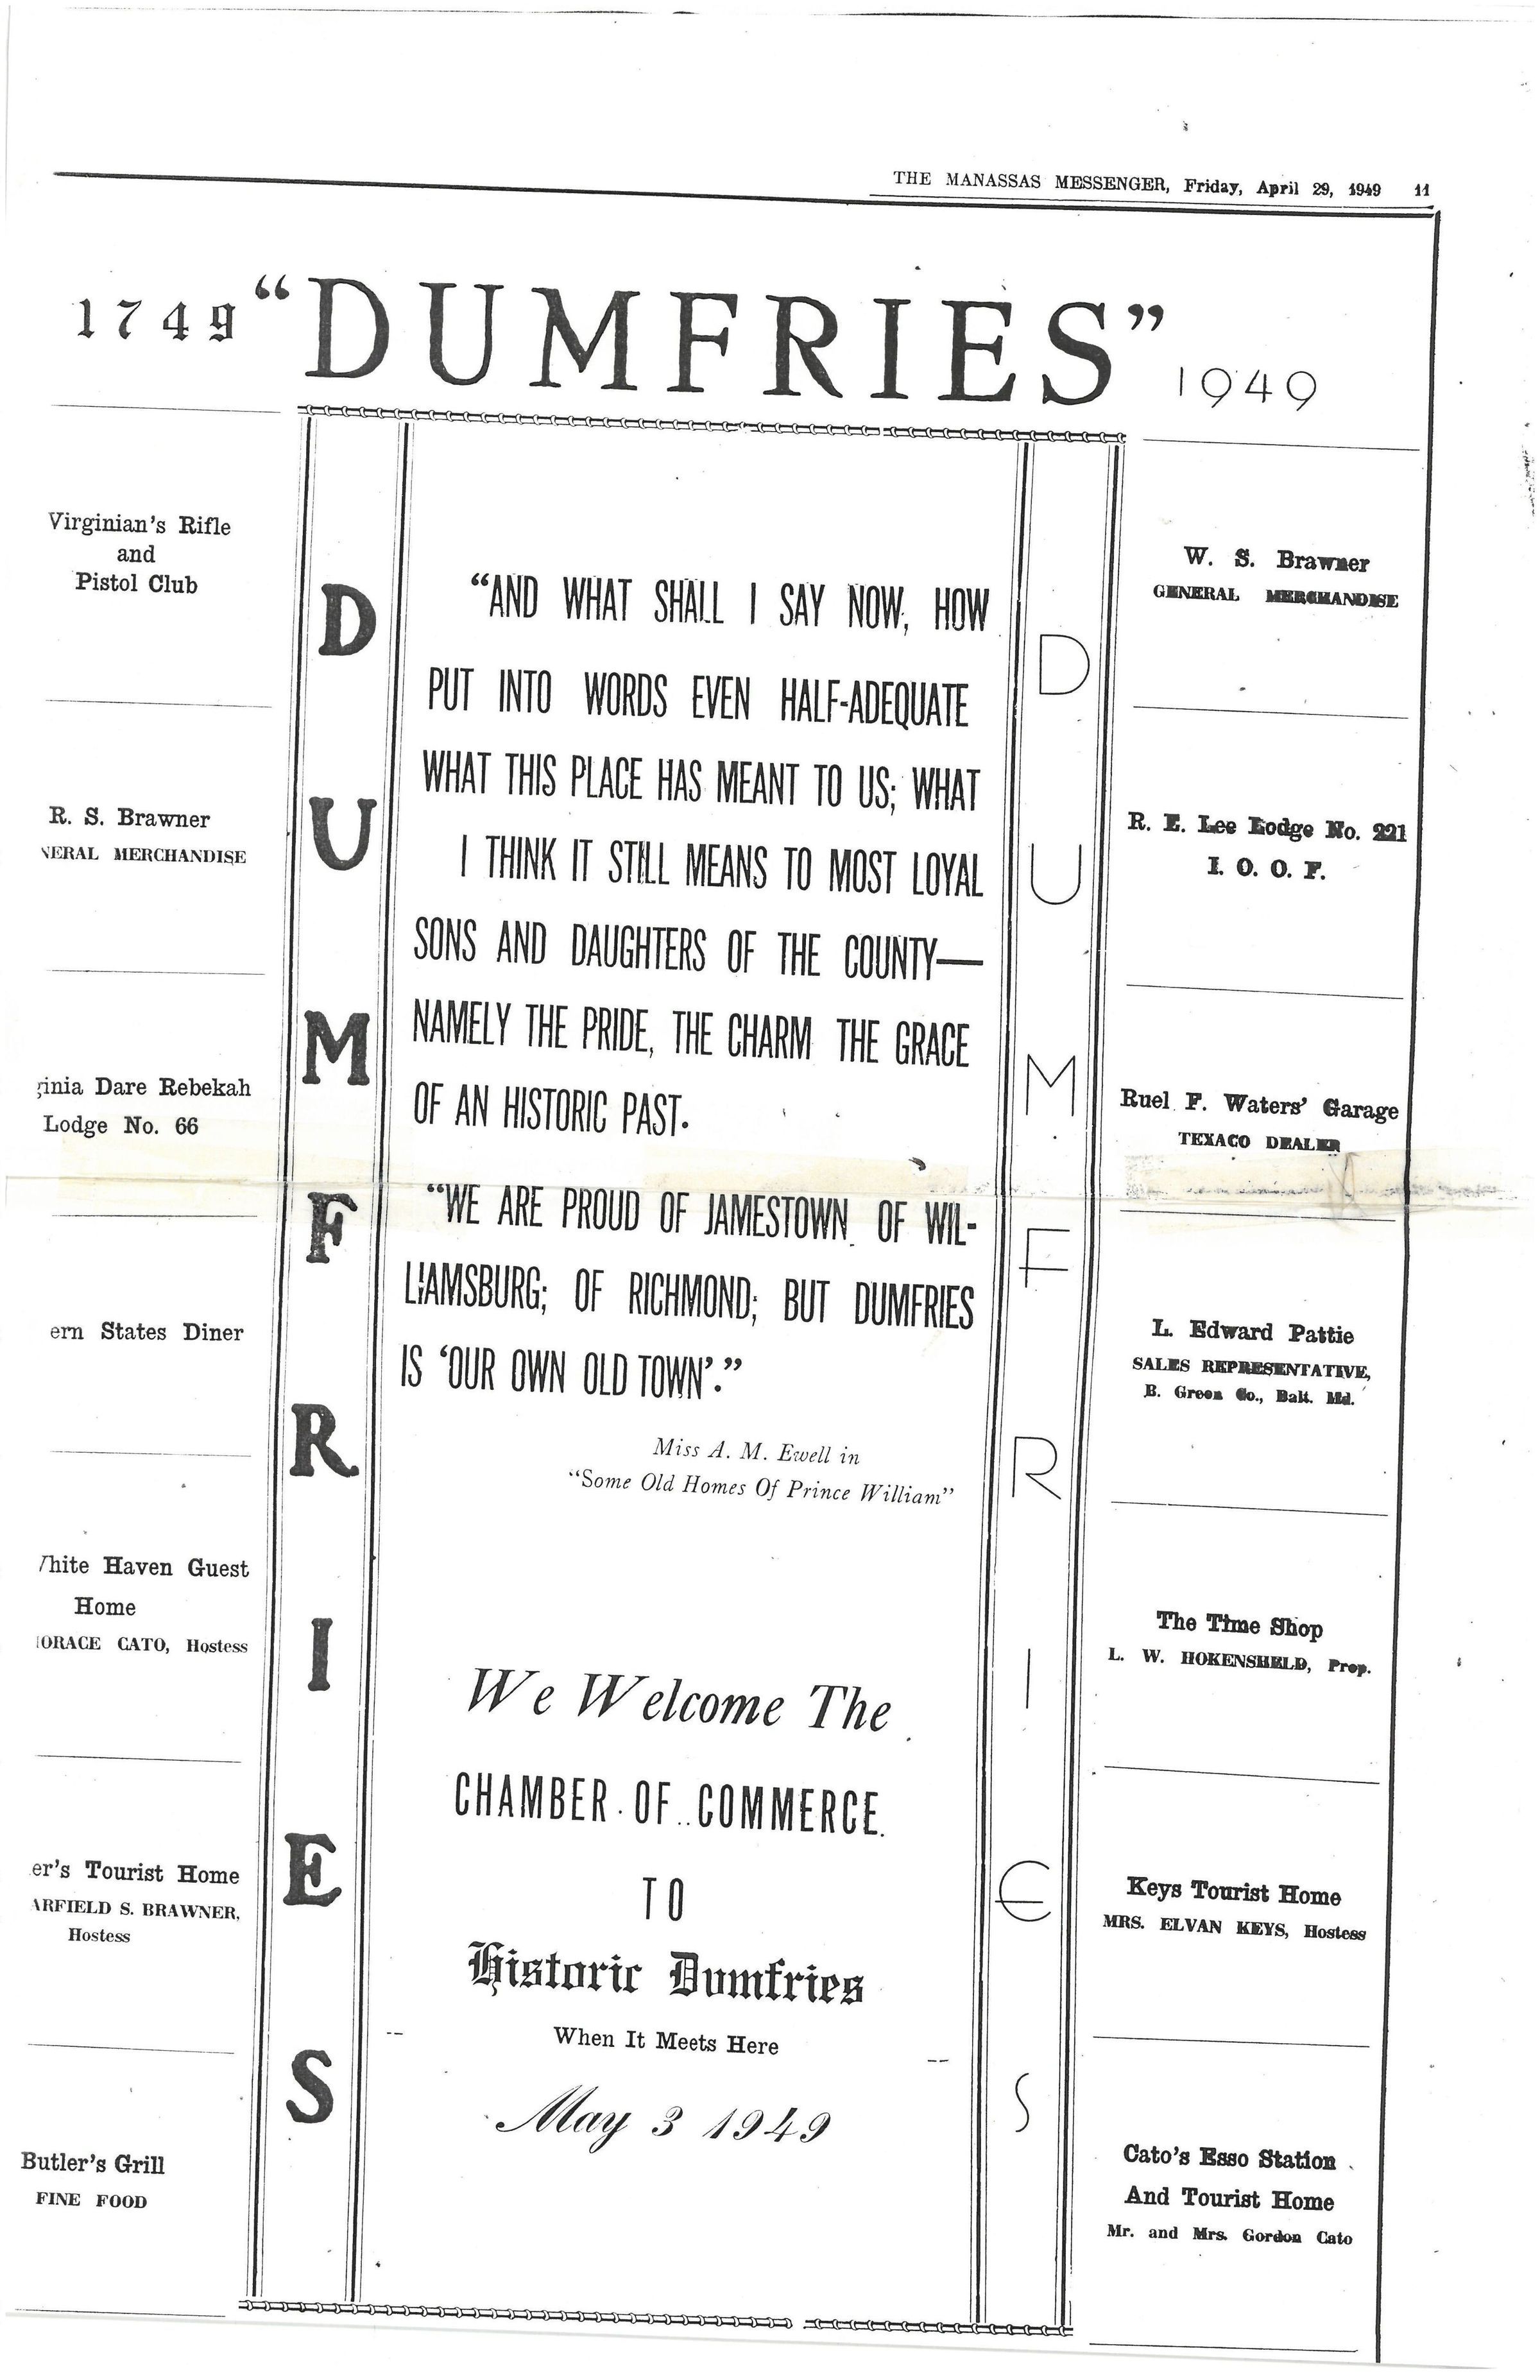 THE MANASSAS MESSENGER, Friday, April 29, 1949 11
1749 "DUMFRIES" 1949
Virginian's Rifle
and
Pistol Club
R. S. Brawner
NERAL MERCHANDISE
ginia Dare Rebekah
Lodge No. 66
ern States Diner
hite Haven Guest
Home
ORACE CATO, Hostess
er's Tourist Home
ARFIELD S. BRAWNER,
Hostess
Butler's Grill
FINE FOOD
D
U
M
F
R
I
E
S
"AND WHAT SHALL I SAY NOW, HOW
PUT INTO WORDS EVEN HALF-ADEQUATE
WHAT THIS PLACE HAS MEANT TO US; WHAT
I THINK IT STILL MEANS TO MOST LOYAL
SONS AND DAUGHTERS OF THE COUNTY—
NAMELY THE PRIDE, THE CHARM THE GRACE
OF AN HISTORIC PAST.
"WE ARE PROUD OF JAMESTOWN, OF WIL-
LIAMSBURG; OF RICHMOND; BUT DUMFRIES
IS 'OUR OWN OLD TOWN'."
Miss A. M. Ewell in
"Some Old Homes Of Prince William"
We Welcome The
CHAMBER OF COMMERCE
TO
Historic Dumfries
When It Meets Here
May 3 1949
D
U
M
F
R
I
E
S
W. S. Brawner
GENERAL MERCHANDISE
R. E. Lee Lodge No. 221
I. O. O. F.
Ruel F. Waters' Garage
TEXACO DEALER
L. Edward Pattie
SALES REPRESENTATIVE,
B. Green Co., Balt. Md.
The Time Shop
L. W. HOKENSHELD, Prop.
Keys Tourist Home
MRS. ELVAN KEYS, Hostess
Cato's Esso Station
And Tourist Home
Mr. and Mrs. Gordon Cato